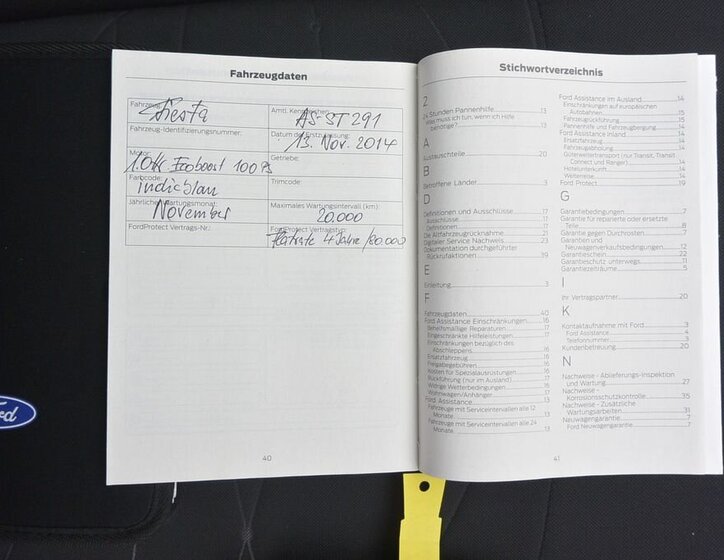 Fahrzeugdaten
Fahrzeug:
Fiesta
Amtl. Kennzeichen:
AS-ST 291
Fahrzeug-Identifizierungsnummer:
Datum der Erstzulassung:
13. Nov. 2014
Motor:
Ecoboost 100 PS
Getriebe:
Farbcode:
indicblau
Trimcode:
Jährlicher Wartungsmonat:
November
Maximales Wartungsintervall (km):
20.000
FordProtect Vertrags-Nr.:
FordProtect Vertragstyp:
Flatrate 4 Jahre/80.000
40
Stichwortverzeichnis
2
24 Stunden Pannenhilfe 13
Was muss ich tun, wenn ich Hilfe
benötige? 13
A
Austauschteile 20
B
Betroffene Länder 3
D
Definitionen und Ausschlüsse 17
Ausschlüsse 17
Definitionen 17
Die Altfahrzeugrücknahme 21
Digitaler Service Nachweis 23
Dokumentation durchgeführter
Rückrufaktionen 39
E
Einleitung 3
F
Fahrzeugdaten 40
Ford Assistance Einschränkungen 16
Behelfsmäßige Reparaturen 17
Eingeschränkte Hilfeleistungen 16
Einschränkungen bezüglich des
Abschleppens 16
Ersatzfahrzeug 16
Freigabegebühren 16
Kosten für Spezialausrüstungen 16
Rückführung (nur im Ausland) 17
Widrige Wetterbedingungen 16
Wohnwagen/Anhänger 17
Ford Assistance 13
Fahrzeuge mit Serviceintervallen alle 12
Monate 13
Fahrzeuge mit Serviceintervallen alle 24
Monate 13
Ford Assistance im Ausland 14
Einschränkungen auf europäischen
Autobahnen 15
Fahrzeugrückführung 15
Pannenhilfe und Fahrzeugbergung 14
Ford Assistance Inland 14
Ersatzfahrzeug 14
Fahrzeugabholung 14
Güterweitertransport (nur Transit, Transit
Connect und Ranger) 14
Hotelunterkunft 14
Weiterreise 14
Ford Protect 19
G
Garantiebedingungen 7
Garantie für reparierte oder ersetzte
Teile 8
Garantie gegen Durchrosten 7
Garantien und
Neuwagenverkaufsbedingungen 12
Garantieschein 22
Garantieschutz unterwegs 11
Garantiezeiträume 5
I
Ihr Vertragspartner 20
K
Kontaktaufnahme mit Ford 3
Ford Assistance 4
Telefonnummer 3
Kundenbetreuung 20
N
Nachweise - Ablieferungs-Inspektion
und Wartung 27
Nachweise -
Korrosionsschutzkontrolle 35
Nachweise - Zusätzliche
Wartungsarbeiten 31
Neuwagengarantie 7
Ford Neuwagengarantie 7
41